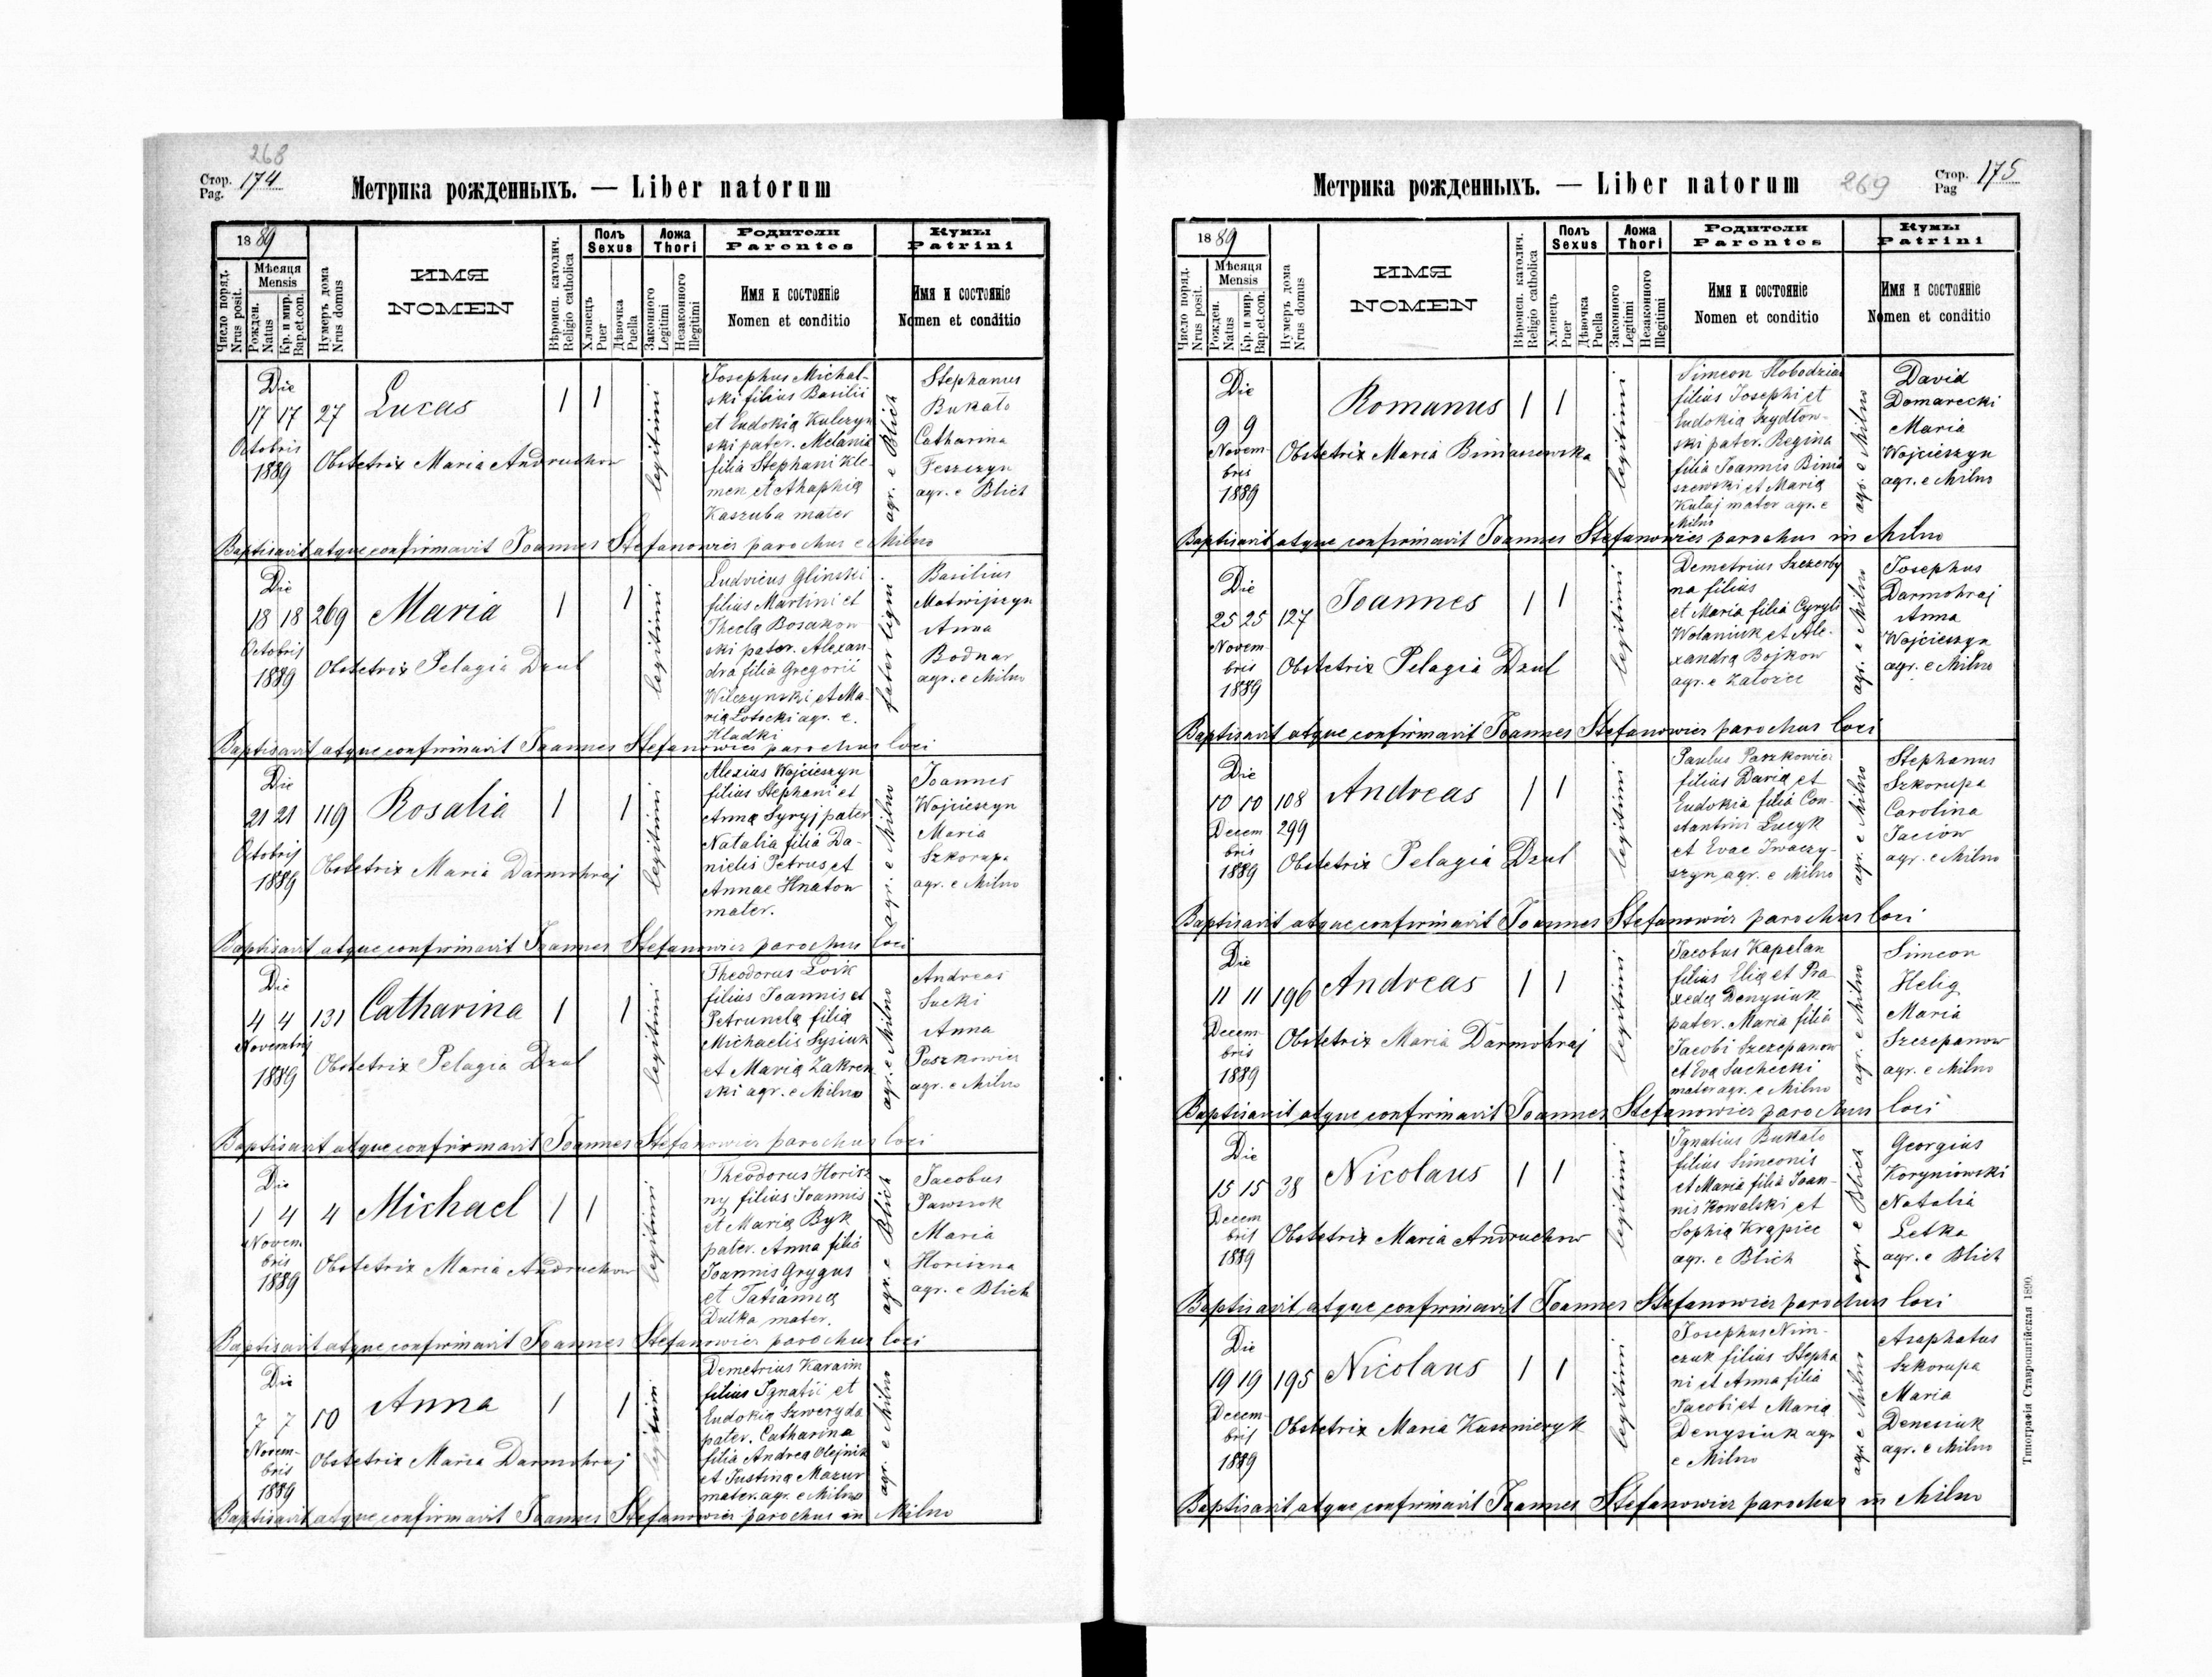 268
Стор. Pag. 174
Метрика рожденныхъ. — Liber natorum
1889
Число поряд. Nrus posit.
Мѣсяця Mensis
Рожден. Natus
Кр. и мир. Bap. et con.
Нумеръ дома Nrus domus
ИМЯ
NOMEN
Вѣроисп. католич. Religio catholica
Полъ Sexus
Хлопецъ Puer
Дѣвочка Puella
Ложа Thori
Законного Legitimi
Незаконного Illegitimi
Родители
Parentes
Имя и состоянie
Nomen et conditio
Кумы
Patrini
Имя и состоянie
Nomen et conditio
Die
17 17 27
Octobris
1889
Lucas
1 1
Obstetrix Maria Andruchow
legitimi
Josephus Michal-
ski filius Basilii
et Eudokią Kulczyn
ski pater. Melania
filia Stephani Kle-
men et Ahaphią
Kaszuba mater
agr. e Blich
Stephanus
Bukato
Catharina
Feszczyn
agr. e Blich
Baptisavit atque confirmavit Joannes Stefanowicz parochus e Milno
Die
18 18 269
Octobris
1889
Maria
1 1
Obstetrix Pelagia Dzul
legitimi
Ludvicus Glinski
filius Martini et
Theclą Bosakow
ski pater. Alexan-
dra filia Gregorii
Wilczynski et Ma-
rią Lotocki agr. e.
Hladki
faber ligni
Basilius
Matwijszyn
Anna
Bodnar
agr. e Milno
Baptisavit atque confirmavit Joannes Stefanowicz parochus loci
Die
21 21 119
Octobris
1889
Rosalia
1 1
Obstetrix Maria Darmohraj
legitimi
Alexius Wojcieszyn
filius Stephani et
Anną Syryj pater
Natalia filia Da-
nielis Petrus et
Annae Hnatow
mater.
agr. e Milno
Joannes
Wojcieszyn
Maria
Szkorupa
agr. e Milno
Baptisavit atque confirmavit Joannes Stefanowicz parochus loci
Die
4 4 131
Novembris
1889
Catharina
1 1
Obstetrix Pelagia Dzul
legitimi
Theodorus Loik
filius Joannis et
Petrunelą filią
Michaelis Sysiuk
et Marią Zakrew
ski agr. e Milno
agr. e Milno
Andreas
Sucki
Anna
Paszkowicz
agr. e Milno
Baptisavit atque confirmavit Joannes Stefanowicz parochus loci
Die
1 4 4
Novem
bris
1889
Michael
1 1
Obstetrix Maria Andruchow
legitimi
Theodorus Horisz
ny filius Joannis
et Marią Byk
pater. Anna filia
Joannis Grygus
et Tatianną
Dutka mater.
agr. e Blich
Jacobus
Pawsiok
Maria
Horiszna
agr. e Blich
Baptisavit atque confirmavit Joannes Stefanowicz parochus loci
Die
7 7 10
Novem-
bris
1889
Anna
1 1
Obstetrix Maria Darmohraj
legitimi
Demetrius Karaim
filius Ignatii et
Eudokią Szweryda
pater. Catharina
filia Andrea Olejnik
et Justiną Mazur
mater. agr. e Milno
agr. e Milno
Baptisavit atque confirmavit Joannes Stefanowicz parochus in Milno
Метрика рожденныхъ. — Liber natorum
269
Стор. Pag 175
1889
Число поряд. Nrus posit.
Мѣсяця Mensis
Рожден. Natus
Кр. и мир. Bap. et con.
Нумеръ дома Nrus domus
ИМЯ
NOMEN
Вѣроисп. католич. Religio catholica
Полъ Sexus
Хлопецъ Puer
Дѣвочка Puella
Ложа Thori
Законного Legitimi
Незаконного Illegitimi
Родители
Parentes
Имя и состоянie
Nomen et conditio
Кумы
Patrini
Имя и состоянie
Nomen et conditio
Die
9 9
Novem-
bris
1889
Romanus
1 1
Obstetrix Maria Biniaszewska
legitimi
Simeon Hobodzian
filius Josephi et
Eudokia Szydlow-
ski pater. Regina
filia Joannis Binia
szewski et Marią
Kulaj mater agr. e
Milno
agr. e Milno
David
Domarecki
Maria
Wojcieszyn
agr. e Milno
Baptisavit atque confirmavit Joannes Stefanowicz parochus in Milno
Die
25 25 127
Novem
bris
1889
Joannes
1 1
Obstetrix Pelagia Dzul
legitimi
Demetrius Szczerby
na filius
et Maria filia Cyryli
Wolaniuk et Ale-
xandrą Bojkow
agr. e Zalozce
agr. e Milno
Josephus
Darmohraj
Anna
Wojcieszyn
agr. e Milno
Baptisavit atque confirmavit Joannes Stefanowicz parochus loci
Die
10 10 108
299
Decem
bris
1889
Andreas
1 1
Obstetrix Pelagia Dzul
legitimi
Paulus Paszkowicz
filius Davią et
Eudokia filia Con-
stantini Lucyk
et Evae Iwaczy-
szyn agr. e Milno
agr. e Milno
Stephanus
Szkorupa
Carolina
Jaciow
agr. e Milno
Baptisavit atque confirmavit Joannes Stefanowicz parochus loci
Die
11 11 196
Decem
bris
1889
Andreas
1 1
Obstetrix Maria Darmohraj
legitimi
Jacobus Kapelan
filius Elią et Pra-
xedą Denysiuk
pater. Maria filia
Jacobi Szczepanow
et Evą Suchecki
mater agr. e Milno
agr. e Milno
Simeon
Helig
Maria
Szczepanow
agr. e Milno
Baptisavit atque confirmavit Joannes Stefanowicz parochus loci
Die
15 15 38
Decem
bris
1889
Nicolaus
1 1
Obstetrix Maria Andruchow
legitimi
Ignatius Bukato
filius Simeonis
et Maria filia Joan-
nis Kowalski et
Sophią Krąpiec
agr. e Blich
agr. e Blich
Georgius
Koryniowski
Natalia
Letka
agr. e Blich
Baptisavit atque confirmavit Joannes Stefanowicz parochus loci
Die
19 19 195
Decem-
bris
1889
Nicolaus
1 1
Obstetrix Maria Kuszniczyk
legitimi
Josephus Nim-
czuk filius Stepha
ni et Anna filia
Jacobi et Marią
Denysiuk agr
e Milno
agr. e Milno
Azaphatus
Szkorupa
Maria
Denesiuk
agr. e Milno
Baptisavit atque confirmavit Joannes Stefanowicz parochus in Milno
Типографія Ставропигійская 1890.